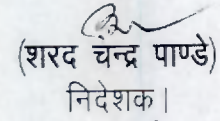 (शरद चन्द्र पाण्डे)
निदेशक।